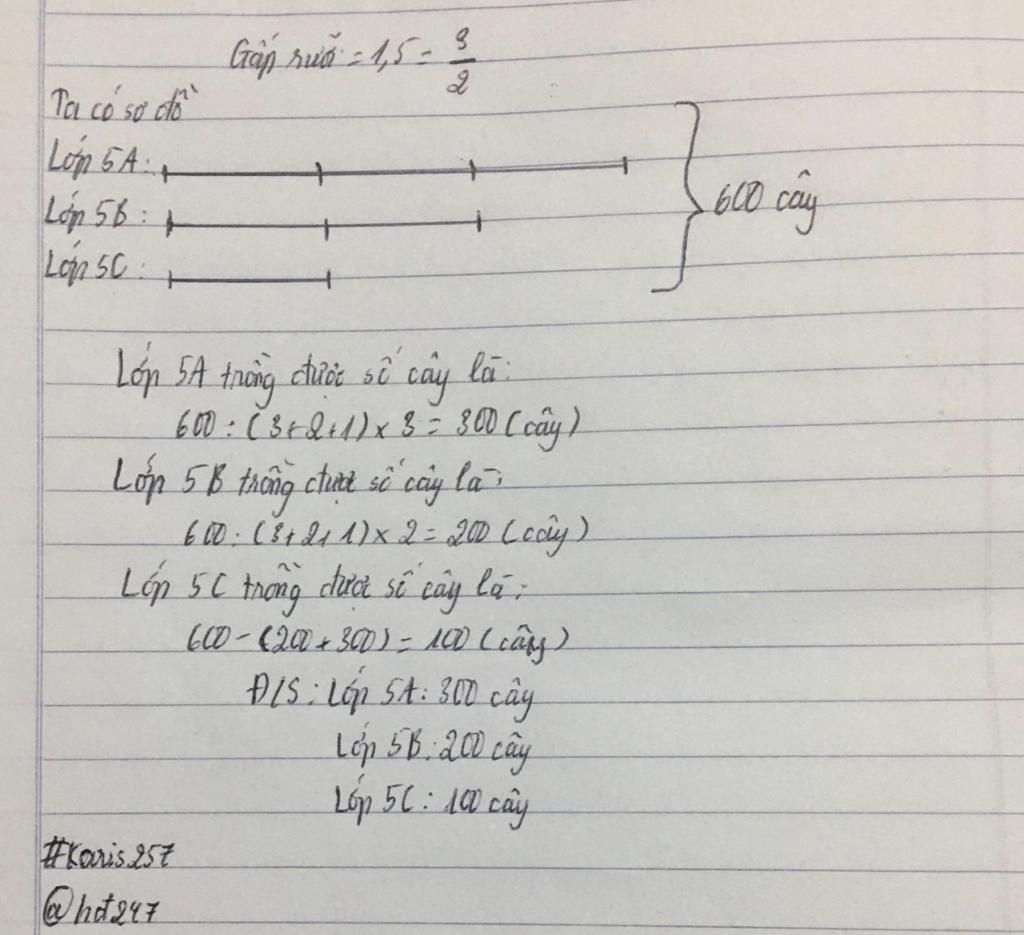 Gấp rưỡi = 1,5 = 3/2
Ta có sơ đồ
Lớp 5A:
Lớp 5B:
Lớp 5C:
600 cây
Lớp 5A trồng được số cây là:
600 : (3+2+1) x 3 = 300 (cây)
Lớp 5B trồng được số cây là:
600 : (3+2+1) x 2 = 200 (cây)
Lớp 5C trồng được số cây là:
600 - (200 + 300) = 100 (cây)
Đ/S: Lớp 5A: 300 cây
Lớp 5B: 200 cây
Lớp 5C: 100 cây
#Karis257
@hdt247